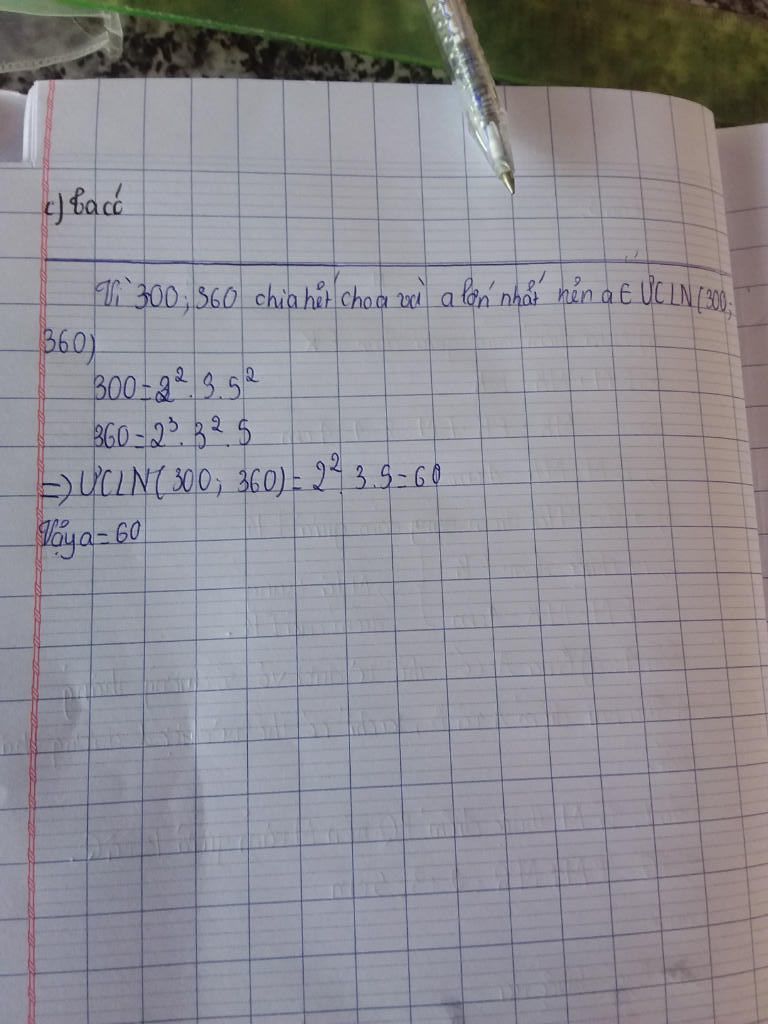 c) Ta có
Vì 300; 360 chia hết cho a và a lớn nhất nên a ∈ ƯCLN(300;
360)
300 = 2². 3. 5²
360 = 2³. 3². 5
=> ƯCLN(300; 360) = 2². 3. 5 = 60
Vậy a = 60